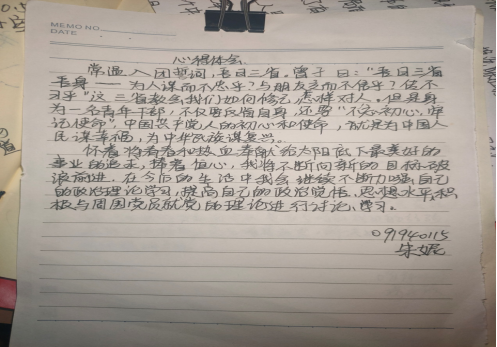 MEMO NO.
DATE
心得体会
常温入团誓词，吾日三省。曾子曰："吾日三省
吾身——为人谋而不忠乎？与朋友交而不信乎？传不
习乎"这三省教会我们如何修己，怎样对人。但是身
为一名青年干部，不仅要反省自身，还要"不忘初心，牢
记使命"，中国共产党人的初心和使命，就是为中国人
民谋幸福，为中华民族谋复兴。
怀着将青春和热血奉献给太阳底下最美好的
事业的追求，捧着恒心，我将不断向新的目标
浪前进。在今后的生活中我会继续不断加强自己
的政治理论学习，提高自己的政治觉悟、思想水平，积
极与周围党员就党的理论进行讨论、学习。
091940115
朱妮